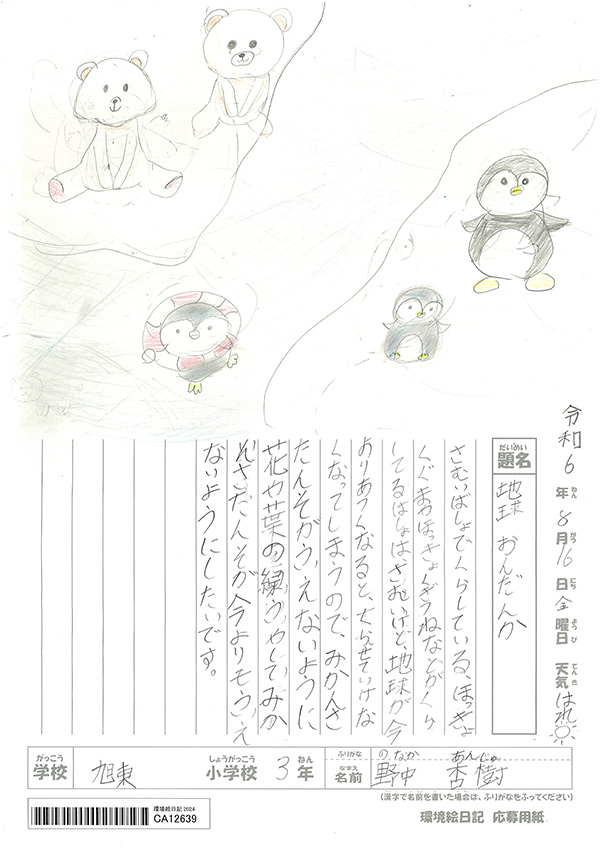 令和6年ねん8月がつ16日にち金曜日ようび天気てんきはれ
だいめい
題名
地球おんだんか
さむいばしょでくらしている、ほっきょ
くぐまやほっきょくぎつねなどがくら
してるばしょは、さむいけど、地球が今
よりあつくなると、くらせていけな
くなってしまうので、みかんさ
たんそがふえないように
花や葉の緑ふやして、みか
んさたんそが今よりもふえ
ないようにしたいです。
がっこう
学校
旭東
しょうがっこう
小学校
3
ねん
年
ふりがな
のなか あんじゅ
なまえ
名前
野中 杏樹
(漢字で名前を書いた場合は、ふりがなをふってください)
環境絵日記 2024
CA12639
環境絵日記 応募用紙